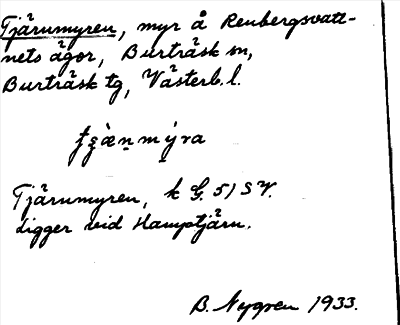 Tjärumyren, myr å Renbergsvatt-
nets ägor, Burträsk sn,
Burträsk tg, Västerb. l.
Tjärumyren, k G. 51 SV.
Ligger vid Hamptjärn.
B. Nygren 1933.